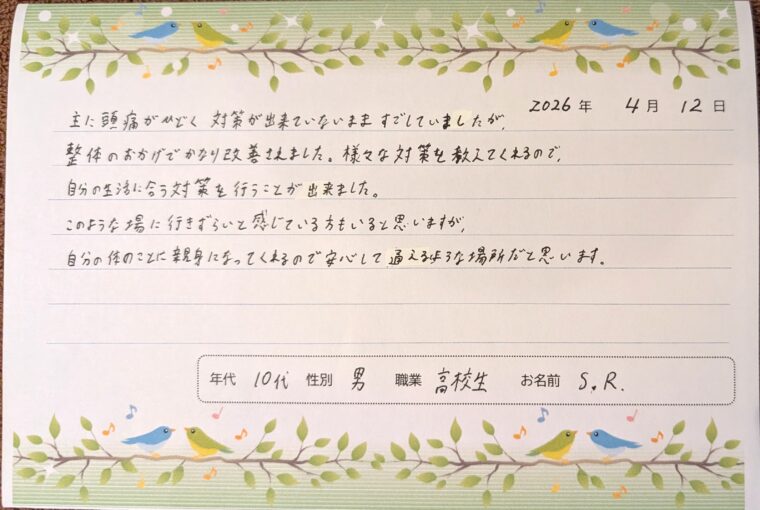 2026年 4月 12日
主に頭痛がひどく 対策が出来ていないまますごしていましたが、
整体のおかげでかなり改善されました。様々な対策を教えてくれるので、
自分の生活に合う対策を行うことが出来ました。
このような場に行きずらいと感じている方もいると思いますが、
自分の体のことに親身になってくれるので安心して通えるような場所だと思います。
年代 10代 性別 男 職業 高校生 お名前 S.R.